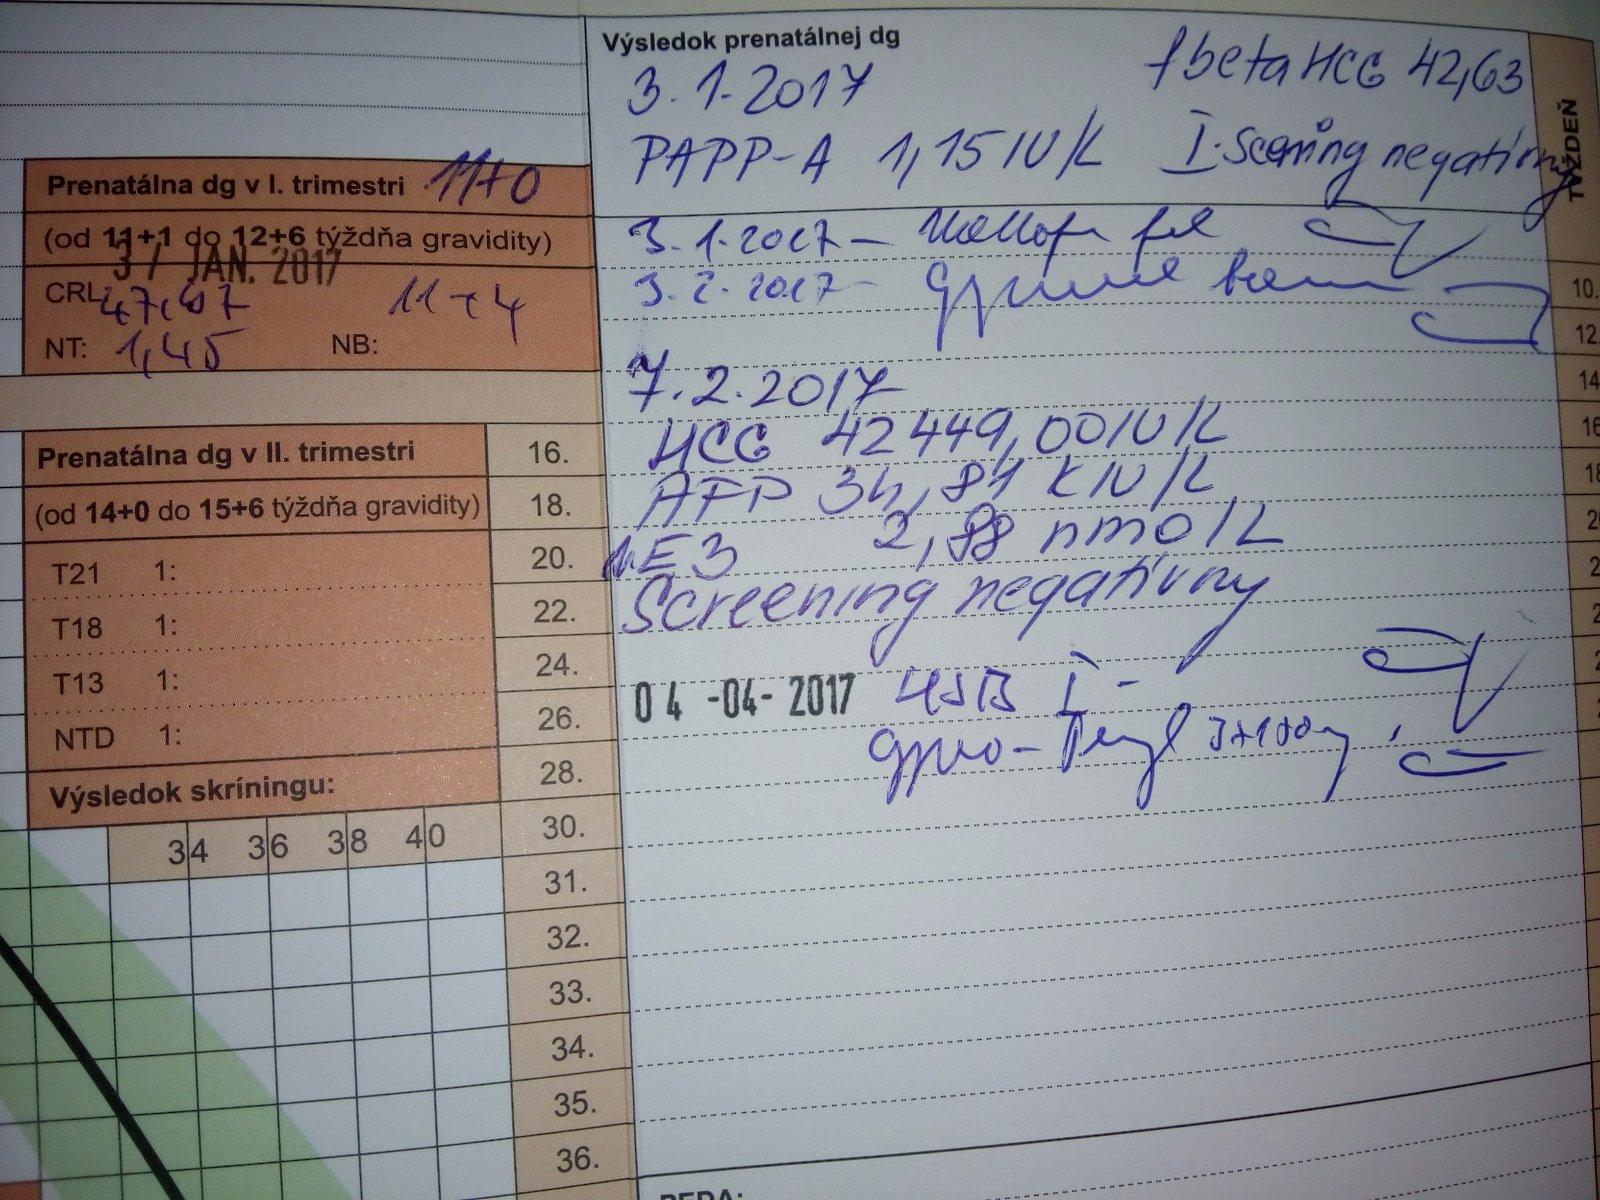 Výsledok prenatálnej dg
3.1.2017 f beta HCG 42,63
PAPP-A 1,15 IU/L I. Scening negatívny
TÝŽDEŇ
Prenatálna dg v I. trimestri 11+0
(od 11+1 do 12+6 týždňa gravidity)
3 / JAN. 2017
CRL 47,67 11+4
NT: 1,45 NB:
3.1.2017 –
3.2.2017 –
10.
12.
14
16
18
7.2.2017
HCG 42 449,00 IU/L
AFP 34,81 kIU/L
uE3 2,88 nmol/L
Screening negatívny
Prenatálna dg v II. trimestri
(od 14+0 do 15+6 týždňa gravidity)
T21 1:
T18 1:
T13 1:
NTD 1:
Výsledok skríningu:
34 36 38 40
16.
18.
20.
22.
24.
26.
28.
30.
31.
32.
33.
34.
35.
36.
04 -04- 2017